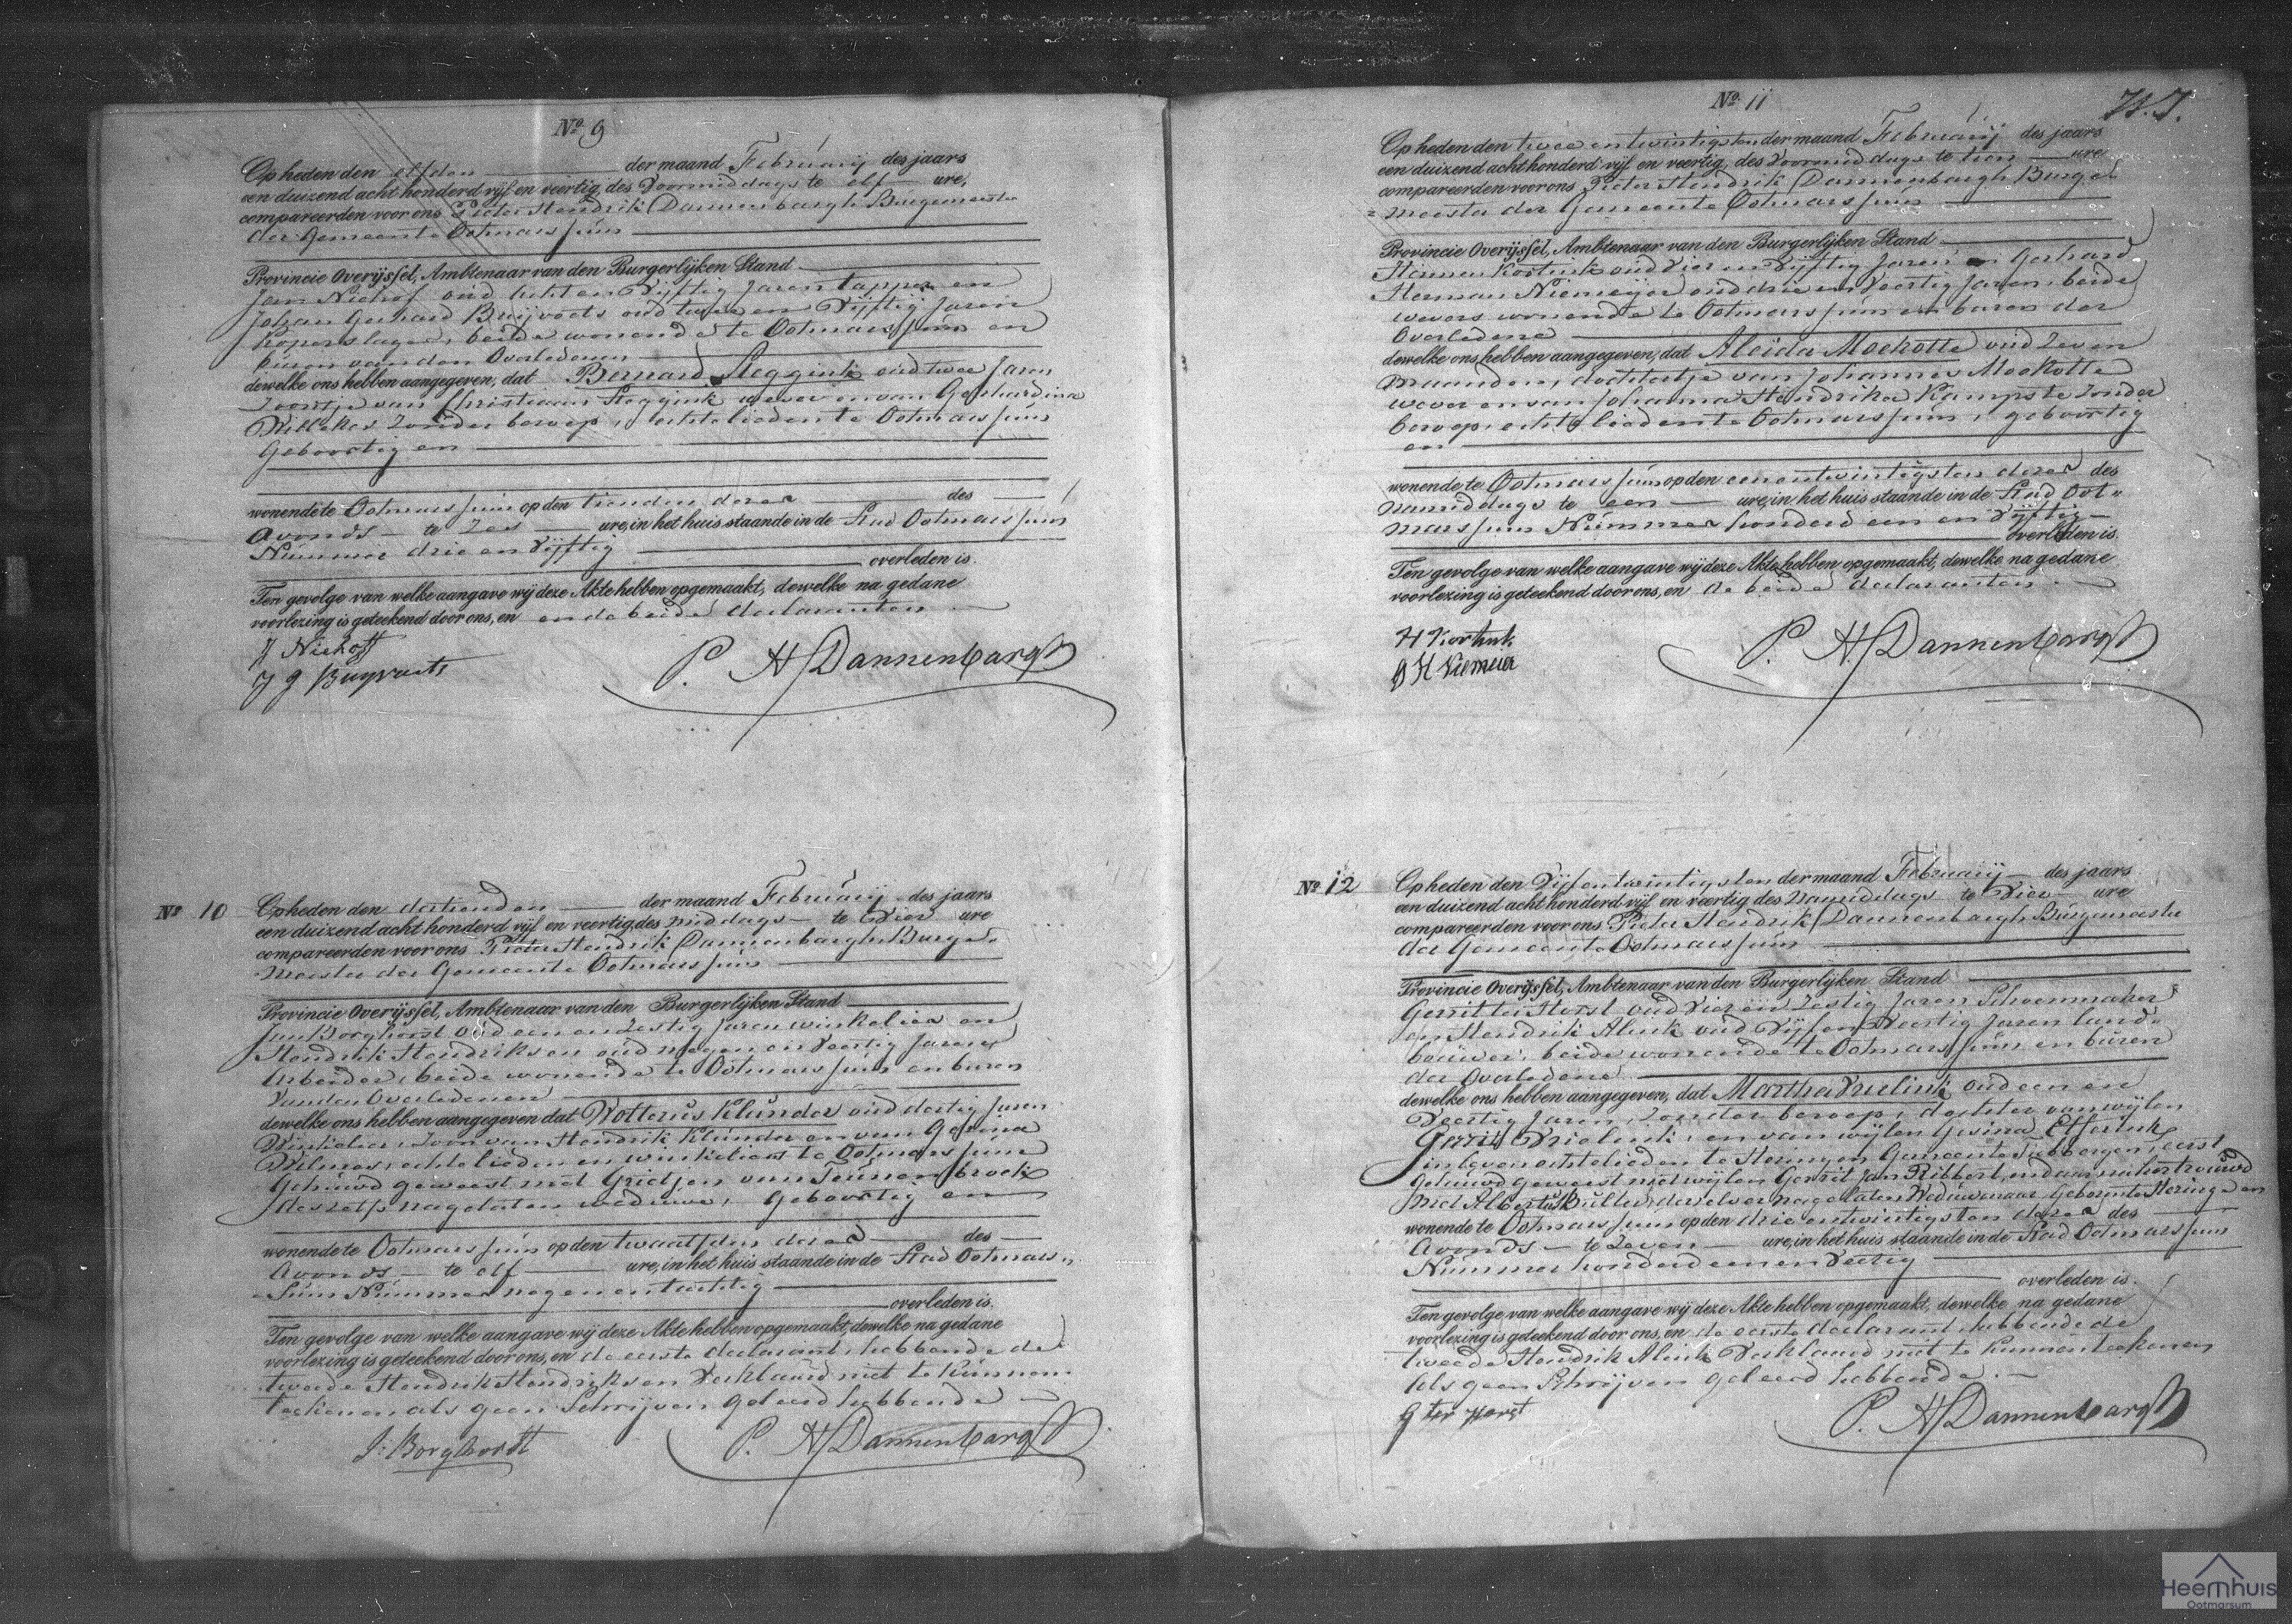 Nº 9
Op heden den elfden der maand Februarij des jaars
een duizend acht honderd vijf en veertig, des Voormiddags te elf ure,
compareerden voor ons Pieter Hendrik Dannenbargh Burgemeester
der Gemeente Ootmarssum
Provincie Overijssel, Ambtenaar van den Burgerlijken Stand
Jan Niehof oud acht en Vijftig Jaren tapper en
Johan Gerhard Buijvoets oud twee en Vijftig Jaren
Koperslager, beide wonende te Ootmarssum en
buren van den Overledenen
dewelke ons hebben aangegeven, dat Bernard Steggink oud twee Jaren
Zoontje van Christiaan Steggink wever en van Gerhardina
Willekes Zonder beroep, echtelieden te Ootmarssum
Geboortig en
wonende te Ootmarssum op den tienden dezer des
Avonds te Zes ure, in het huis staande in de Stad Ootmarssum
Nummer drie en Vijftig
overleden is.
Ten gevolge van welke aangave wij deze Akte hebben opgemaakt, dewelke na gedane
voorlezing is geteekend door ons, en en de beide declaranten
J Niehoff
J G Buyvoets
P. H. Dannenbargh
Nº 10
Op heden den dertienden der maand Februarij des jaars
een duizend acht honderd vijf en veertig, des middags te Vier ure
compareerden voor ons Pieter Hendrik Dannenbargh Burge-
meester der Gemeente Ootmarssum
Provincie Overijssel, Ambtenaar van den Burgerlijken Stand
Jan Borghorst oud een en Zestig Jaren winkelier en
Hendrik Hendriksen oud negen en Veertig Jaren
Arbeider, beide wonende te Ootmarssum en buren
Van den Overledenen
dewelke ons hebben aangegeven dat Wolterus Klunder oud dertig Jaren
Winkelier, Zoon van Hendrik Klunder en van Gesina
Wilmes, echtelieden en winkeliers te Ootmarssum
Gehuwd geweest met Grietjen van Teunenbroek
deszelfs nagelaten weduwe, Geboortig en
wonende te Ootmarssum op den twaalfden dezer des
Avonds te elf ure, in het huis staande in de Stad Ootmars-
sum Nummer negen en tachtig
overleden is.
Ten gevolge van welke aangave wij deze Akte hebben opgemaakt, dewelke na gedane
voorlezing is geteekend door ons, en de eerste declarant hebbende de
tweede Hendrik Hendriksen Verklaard niet te kunnen
teekenen als geen Schrijven geleerd hebbende
J: Borghorst
P. H. Dannenbargh
Nº 11
Op heden den twee entwintigsten der maand Februarij des jaars
een duizend acht honderd vijf en veertig, des Voormiddags te tien ure
compareerden voor ons Pieter Hendrik Dannenbargh Burge-
meester der Gemeente Ootmarssum
Provincie Overijssel, Ambtenaar van den Burgerlijken Stand
Hermen Kortink oud Vier en Vijftig Jaren en Gerhard
Herman Niemeijer oud drie en Veertig Jaren, beide
wevers wonende te Ootmarssum en buren der
Overledene
dewelke ons hebben aangegeven, dat Aleida Moekotte oud Zeven
maanden, dochtertje van Johannes Moekotte
wever en van Johanna Hendrika Kampste Zonder
beroep, echtelieden te Ootmarssum, geboortig
en
wonende te Ootmarssum op den eenentwintigsten dezer des
namiddags te een ure, in het huis staande in de Stad Oot-
marssum Nummer honderd een en Vijftig
overleden is.
Ten gevolge van welke aangave wij deze Akte hebben opgemaakt, dewelke na gedane
voorlezing is geteekend door ons, en de beide declaranten
H Kortink
G H Niemeier
P. H. Dannenbargh
Nº 12
Op heden den Vijfentwintigsten der maand Februarij des jaars
een duizend acht honderd vijf en veertig des Namiddags te Vier ure
compareerden voor ons Pieter Hendrik Dannenbargh Burgemeester
der Gemeente Ootmarssum
Provincie Overijssel, Ambtenaar van den Burgerlijken Stand
Gerrit ter Horst oud Vier en Zestig Jaren Schoenmaker
en Hendrik Alink oud Vijf en Veertig Jaren land-
bouwer, beide wonende te Ootmarssum en buren
der Overledene
dewelke ons hebben aangegeven, dat Martha Vrielink oud een en
Veertig Jaren, Zonder beroep, dochter van wijlen
Gerrit Vrielink, en van wijlen Gesina Efferink
in leven echtelieden te Haringen Gemeente Tubbergen, eerst
gehuwd geweest met wijlen Gerrit Jan Ribbert, en daarna hertrouwd
met Albertus Bulter, derzelver nagelaten Weduwenaar Geboren te Haringe en
wonende te Ootmarssum op den drie entwintigsten dezer des
Avonds te Zeven ure, in het huis staande in de Stad Ootmarssum
Nummer honderd een en Veertig
overleden is.
Ten gevolge van welke aangave wij deze Akte hebben opgemaakt, dewelke na gedane
voorlezing is geteekend door ons, en de eerste declarant, hebbende de
tweede Hendrik Alink Verklaard niet te kunnen teekenen
als geen Schrijven geleerd hebbende.
G ter Horst
P. H. Dannenbargh
Heemhuis
Ootmarsum